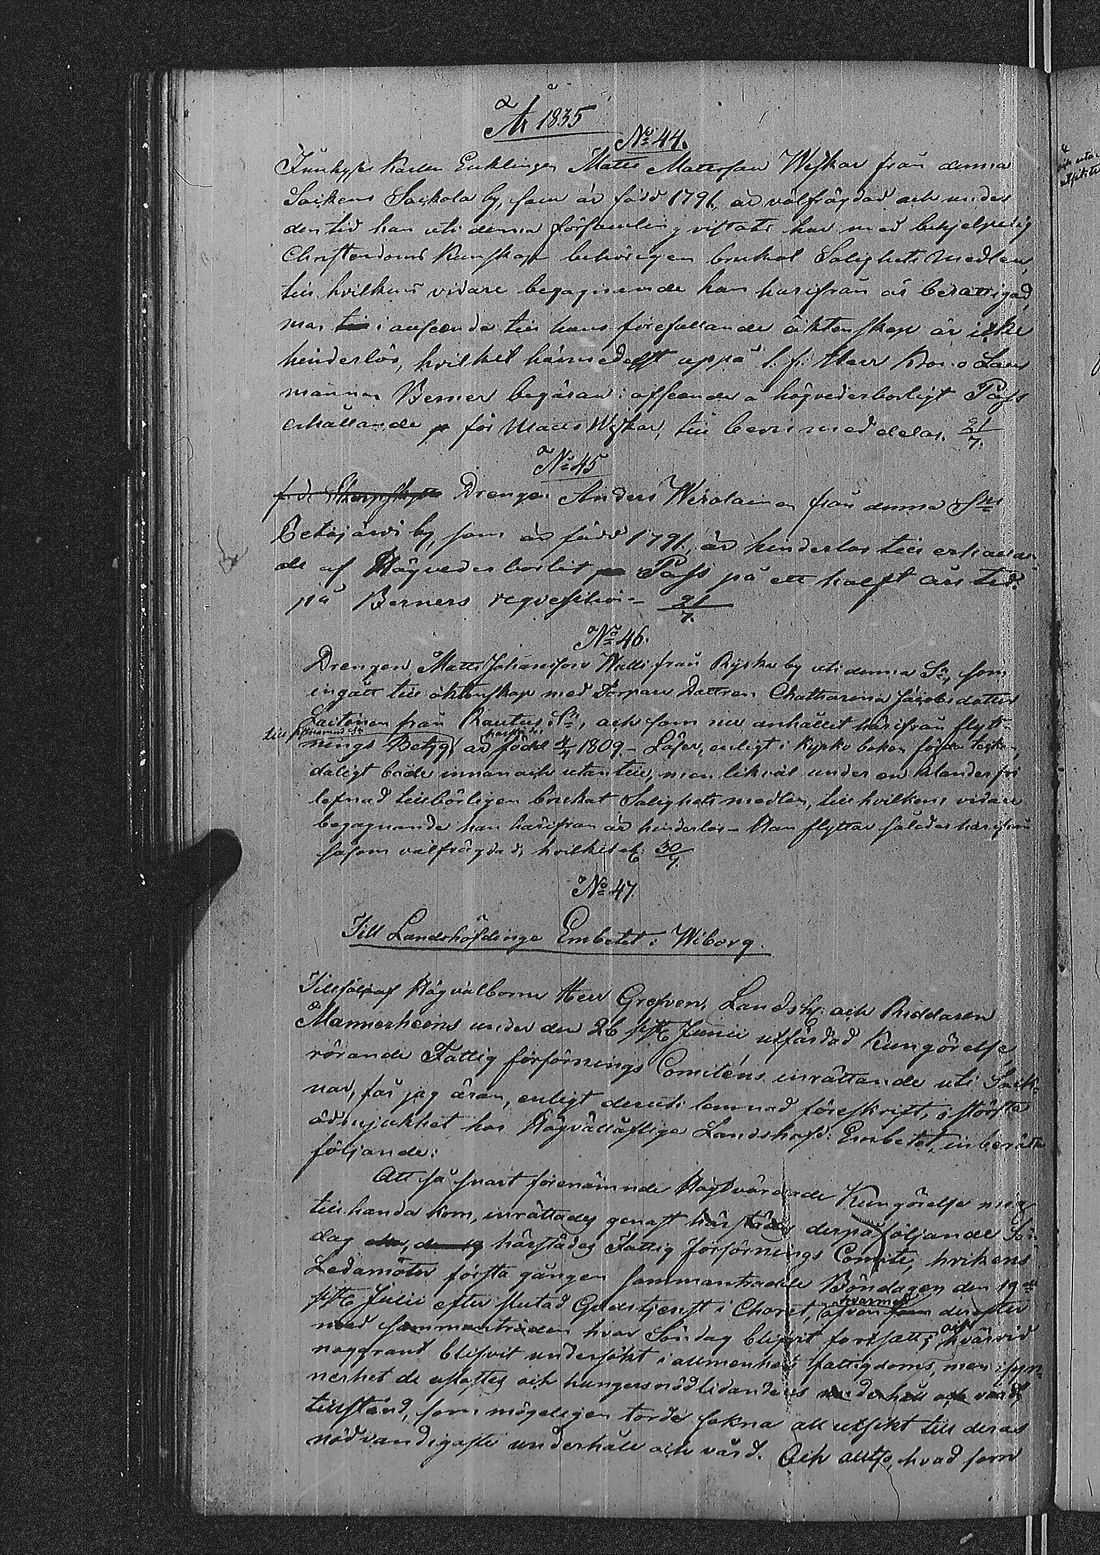 År 1835
No 44.
Inhyses Karlen Enklingen Matts Mattsson Wijkar från denna
Sockens Sackola by, som är född 1796, är välfrägdad och under
den tid han uti denna församling vistats har med behjelpelig
Christendoms Kunskap behörigen brukat Salighets Medlen,
till hvilkens vidare begagnande han härifrån är berättigad,
men i anseende till hans förefallande äktenskap är icke
hinderlös, hvilket härmedelst uppå Herr Läns
mannen Berner begäran i afseende å högvederborligt Pass
erhållande för Matts Wijkar, till bevis meddelas. 21/7.
No 45
Drengen Anders Weralainen från denna Sns
Petäjärvi by, som är född 1791, är hinderlös till erhållan-
de af Högvederborligt Pass på ett halft års tid.
på Berners reqvisition – 21/7.
No 46.
Drengen Matts Johansson Walli från Ryska by uti denna Sn, som
ingått till äktenskap med Torpare Dottren Chatharina Jacobsdotter
Laitinen från Rautus Sn, och som nu anhållit härifrån flytt-
nings Betyg, är född 1809 – Läser, enligt i Kyrko boken
daligt både innan och utan till, men likväl under en klanderfri
lefnad tillbörligen brukat Salighets medlen, till hvilkens vidare
begagnande han härifrån är hinderlös – Han flyttar således härifrån
såsom välfrägdad, hvilket etc 30/7.
No 47.
Till Landshöfdinge Embetet i Wiborg.
Tillfölje af Högvälborne Herr Grefven, Landsh. och Riddaren
Mannerheims under den 26 Junii utfärdad Kungörelse
rörande Fattig försörjnings Comiténs inrättande uti Sock-
nar, får jag äran, enligt deruti lemnad föreskrift, i största
ödmjukhet hos Högvälloflige Landshöfd: Embetet, inberätta
följande:
Att så snart förenämnde Högtvärdade Kungörelse mig
tillhanda kom, inrättades genast härstädes derpåföljande Sön-
dag härstädes Fattig försörjnings Comité, hvikens
Ledamöter första gången sammanträdde Böndagen den 19de
Julii efter slutad Gudstjenst i Choret, derefter
med sammanträden hvar Söndag blifvit fortsatt, och hvarvid
noggrant blifvit undersökt i allmenhet fattigdoms, men i syn-
nerhet de utfattes och hungersnödlidandens
tillstånd, som möjeligen torde sakna all utsikt till deras
nödvändigaste underhåll och vård. Och alltså, hvad som